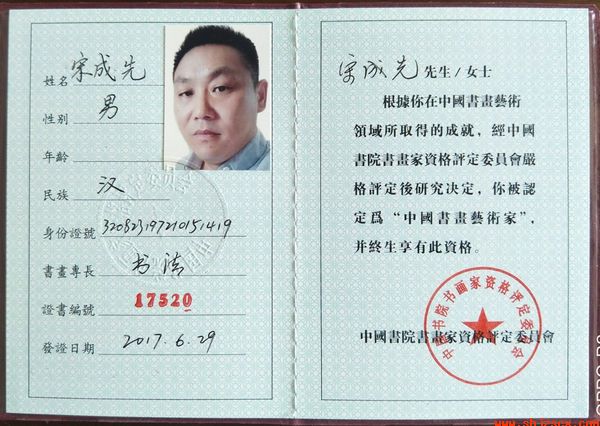 姓名 宋成先
性别 男
年齡
民族 汉
身份證號 320823197210151419
書畫專長 书法
證書編號 17520
發證日期 2017.6.29
宋成先 先生/女士
根據你在中國書畫藝術
領域所取得的成就，經中國
書院書畫家資格評定委員會嚴
格評定後研究决定，你被認
定爲“中國書畫藝術家”，
并終生享有此資格。
中国书院书画家资格评定委员会
中國書院書畫家資格評定委員會